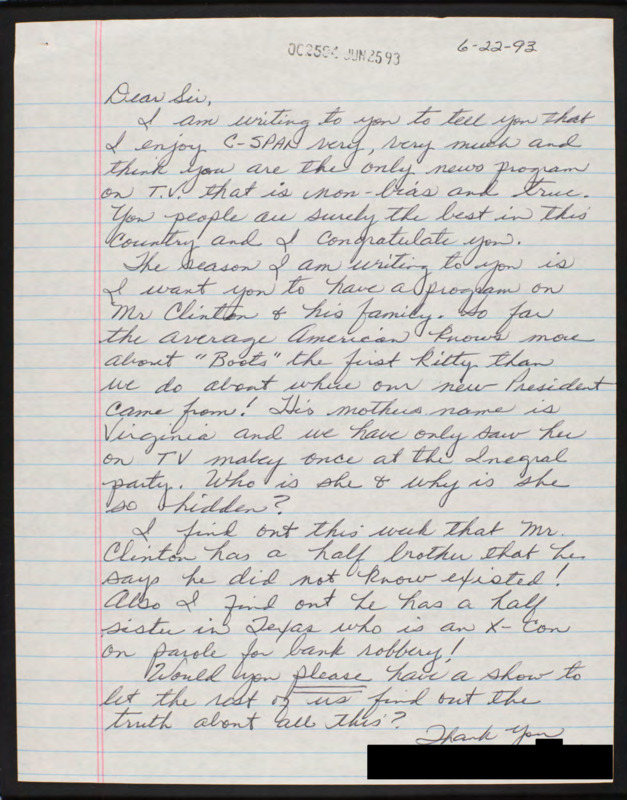 OC2594 JUN 25 93
6-22-93
Dear Sir,
I am writing to you to tell you that
I enjoy C-SPAN very, very much and
think you are the only news program
on T.V. that is non-bias and true.
You people are surely the best in this
country and I congratulate you.
The reason I am writing to you is
I want you to have a program on
Mr Clinton & his family. So far
the average American knows more
about "Boots" the first kitty than
we do about where our new President
came from! His mothers name is
Virginia and we have only saw her
on TV mabey once at the Inegral
party. Who is she & why is she
so hidden?
I find out this week that Mr.
Clinton has a half brother that he
says he did not know existed!
Also I find out he has a half
sister in Texas who is an X-Con
on parole for bank robbery!
Would you please have a show to
let the rest of us find out the
truth about all this?
Thank You